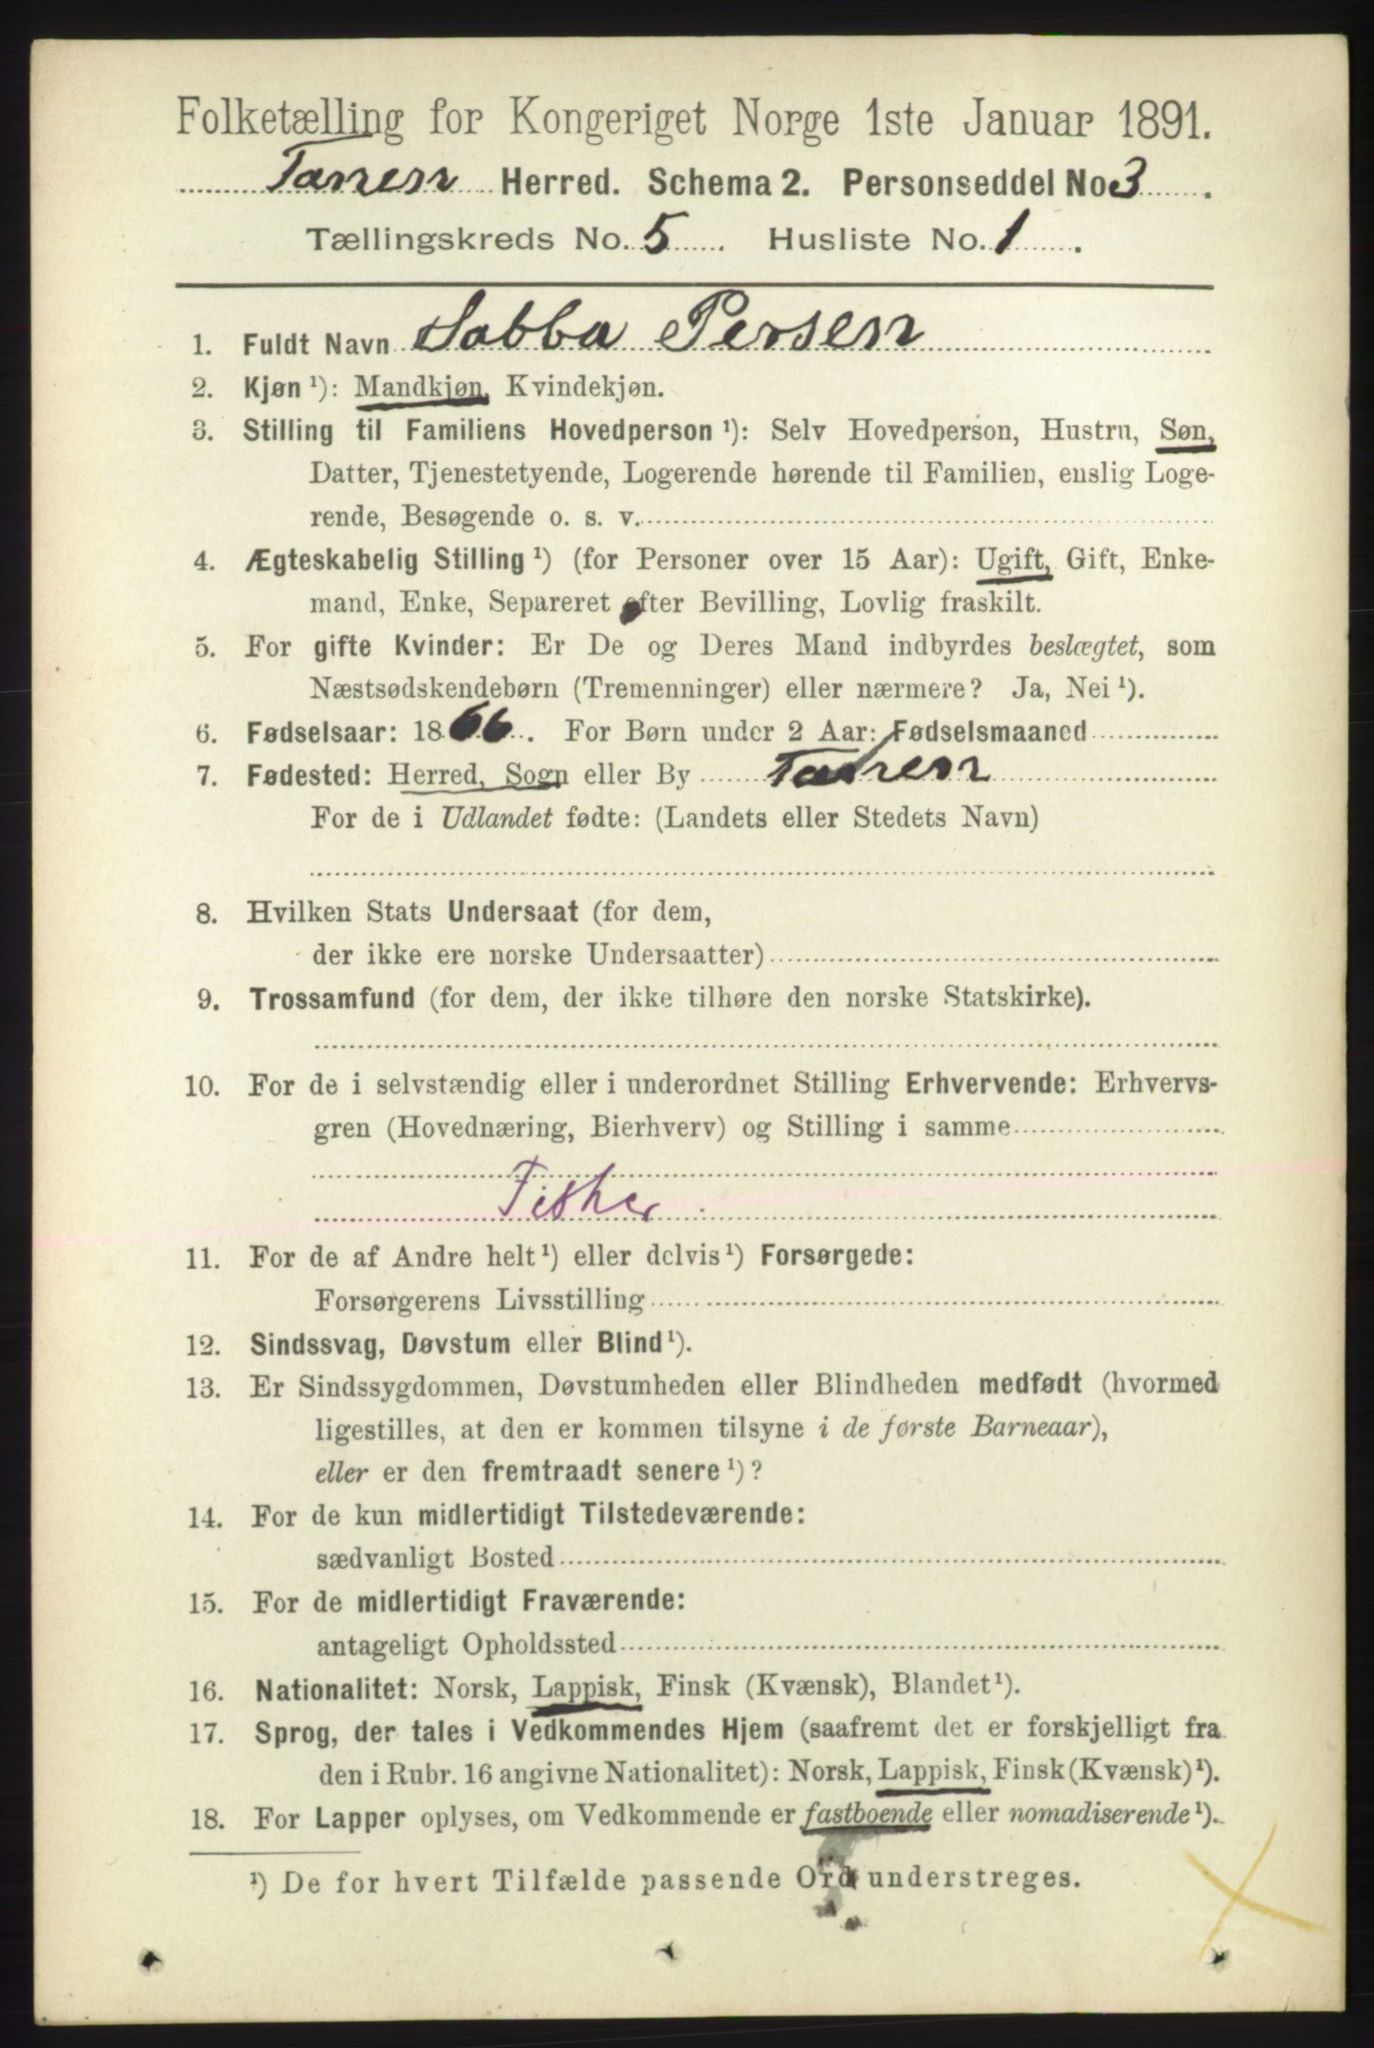 Folketælling for Kongeriget Norge 1ste Januar 1891.
Tanen Herred. Schema 2. Personseddel No. 3.
Tællingskreds No. 5. Husliste No. 1.
1. Fuldt Navn Sabba Persen
2. Kjøn ¹): Mandkjøn, Kvindekjøn.
3. Stilling til Familiens Hovedperson ¹): Selv Hovedperson, Hustru, Søn,
Datter, Tjenestetyende, Logerende hørende til Familien, enslig Loge-
rende, Besøgende o. s. v.
4. Ægteskabelig Stilling ¹) (for Personer over 15 Aar): Ugift, Gift, Enke-
mand, Enke, Separeret efter Bevilling, Lovlig fraskilt.
5. For gifte Kvinder: Er De og Deres Mand indbyrdes beslægtet, som
Næstsødskendebørn (Tremenninger) eller nærmere? Ja, Nei ¹).
6. Fødselsaar: 1866. For Børn under 2 Aar: Fødselsmaaned
7. Fødested: Herred, Sogn eller By Tanen
For de i Udlandet fødte: (Landets eller Stedets Navn)
8. Hvilken Stats Undersaat (for dem,
der ikke ere norske Undersaatter)
9. Trossamfund (for dem, der ikke tilhøre den norske Statskirke).
10. For de i selvstændig eller i underordnet Stilling Erhvervende: Erhvervs-
gren (Hovednæring, Bierhverv) og Stilling i samme
Fisker
11. For de af Andre helt ¹) eller delvis ¹) Forsørgede:
Forsørgerens Livsstilling
12. Sindssvag, Døvstum eller Blind ¹).
13. Er Sindssygdommen, Døvstumheden eller Blindheden medfødt (hvormed
ligestilles, at den er kommen tilsyne i de første Barneaar),
eller er den fremtraadt senere ¹)?
14. For de kun midlertidigt Tilstedeværende:
sædvanligt Bosted
15. For de midlertidigt Fraværende:
antageligt Opholdssted
16. Nationalitet: Norsk, Lappisk, Finsk (Kvænsk), Blandet ¹).
17. Sprog, der tales i Vedkommendes Hjem (saafremt det er forskjelligt fra
den i Rubr. 16 angivne Nationalitet): Norsk, Lappisk, Finsk (Kvænsk) ¹).
18. For Lapper oplyses, om Vedkommende er fastboende eller nomadiserende ¹).
¹) De for hvert Tilfælde passende Ord understreges.